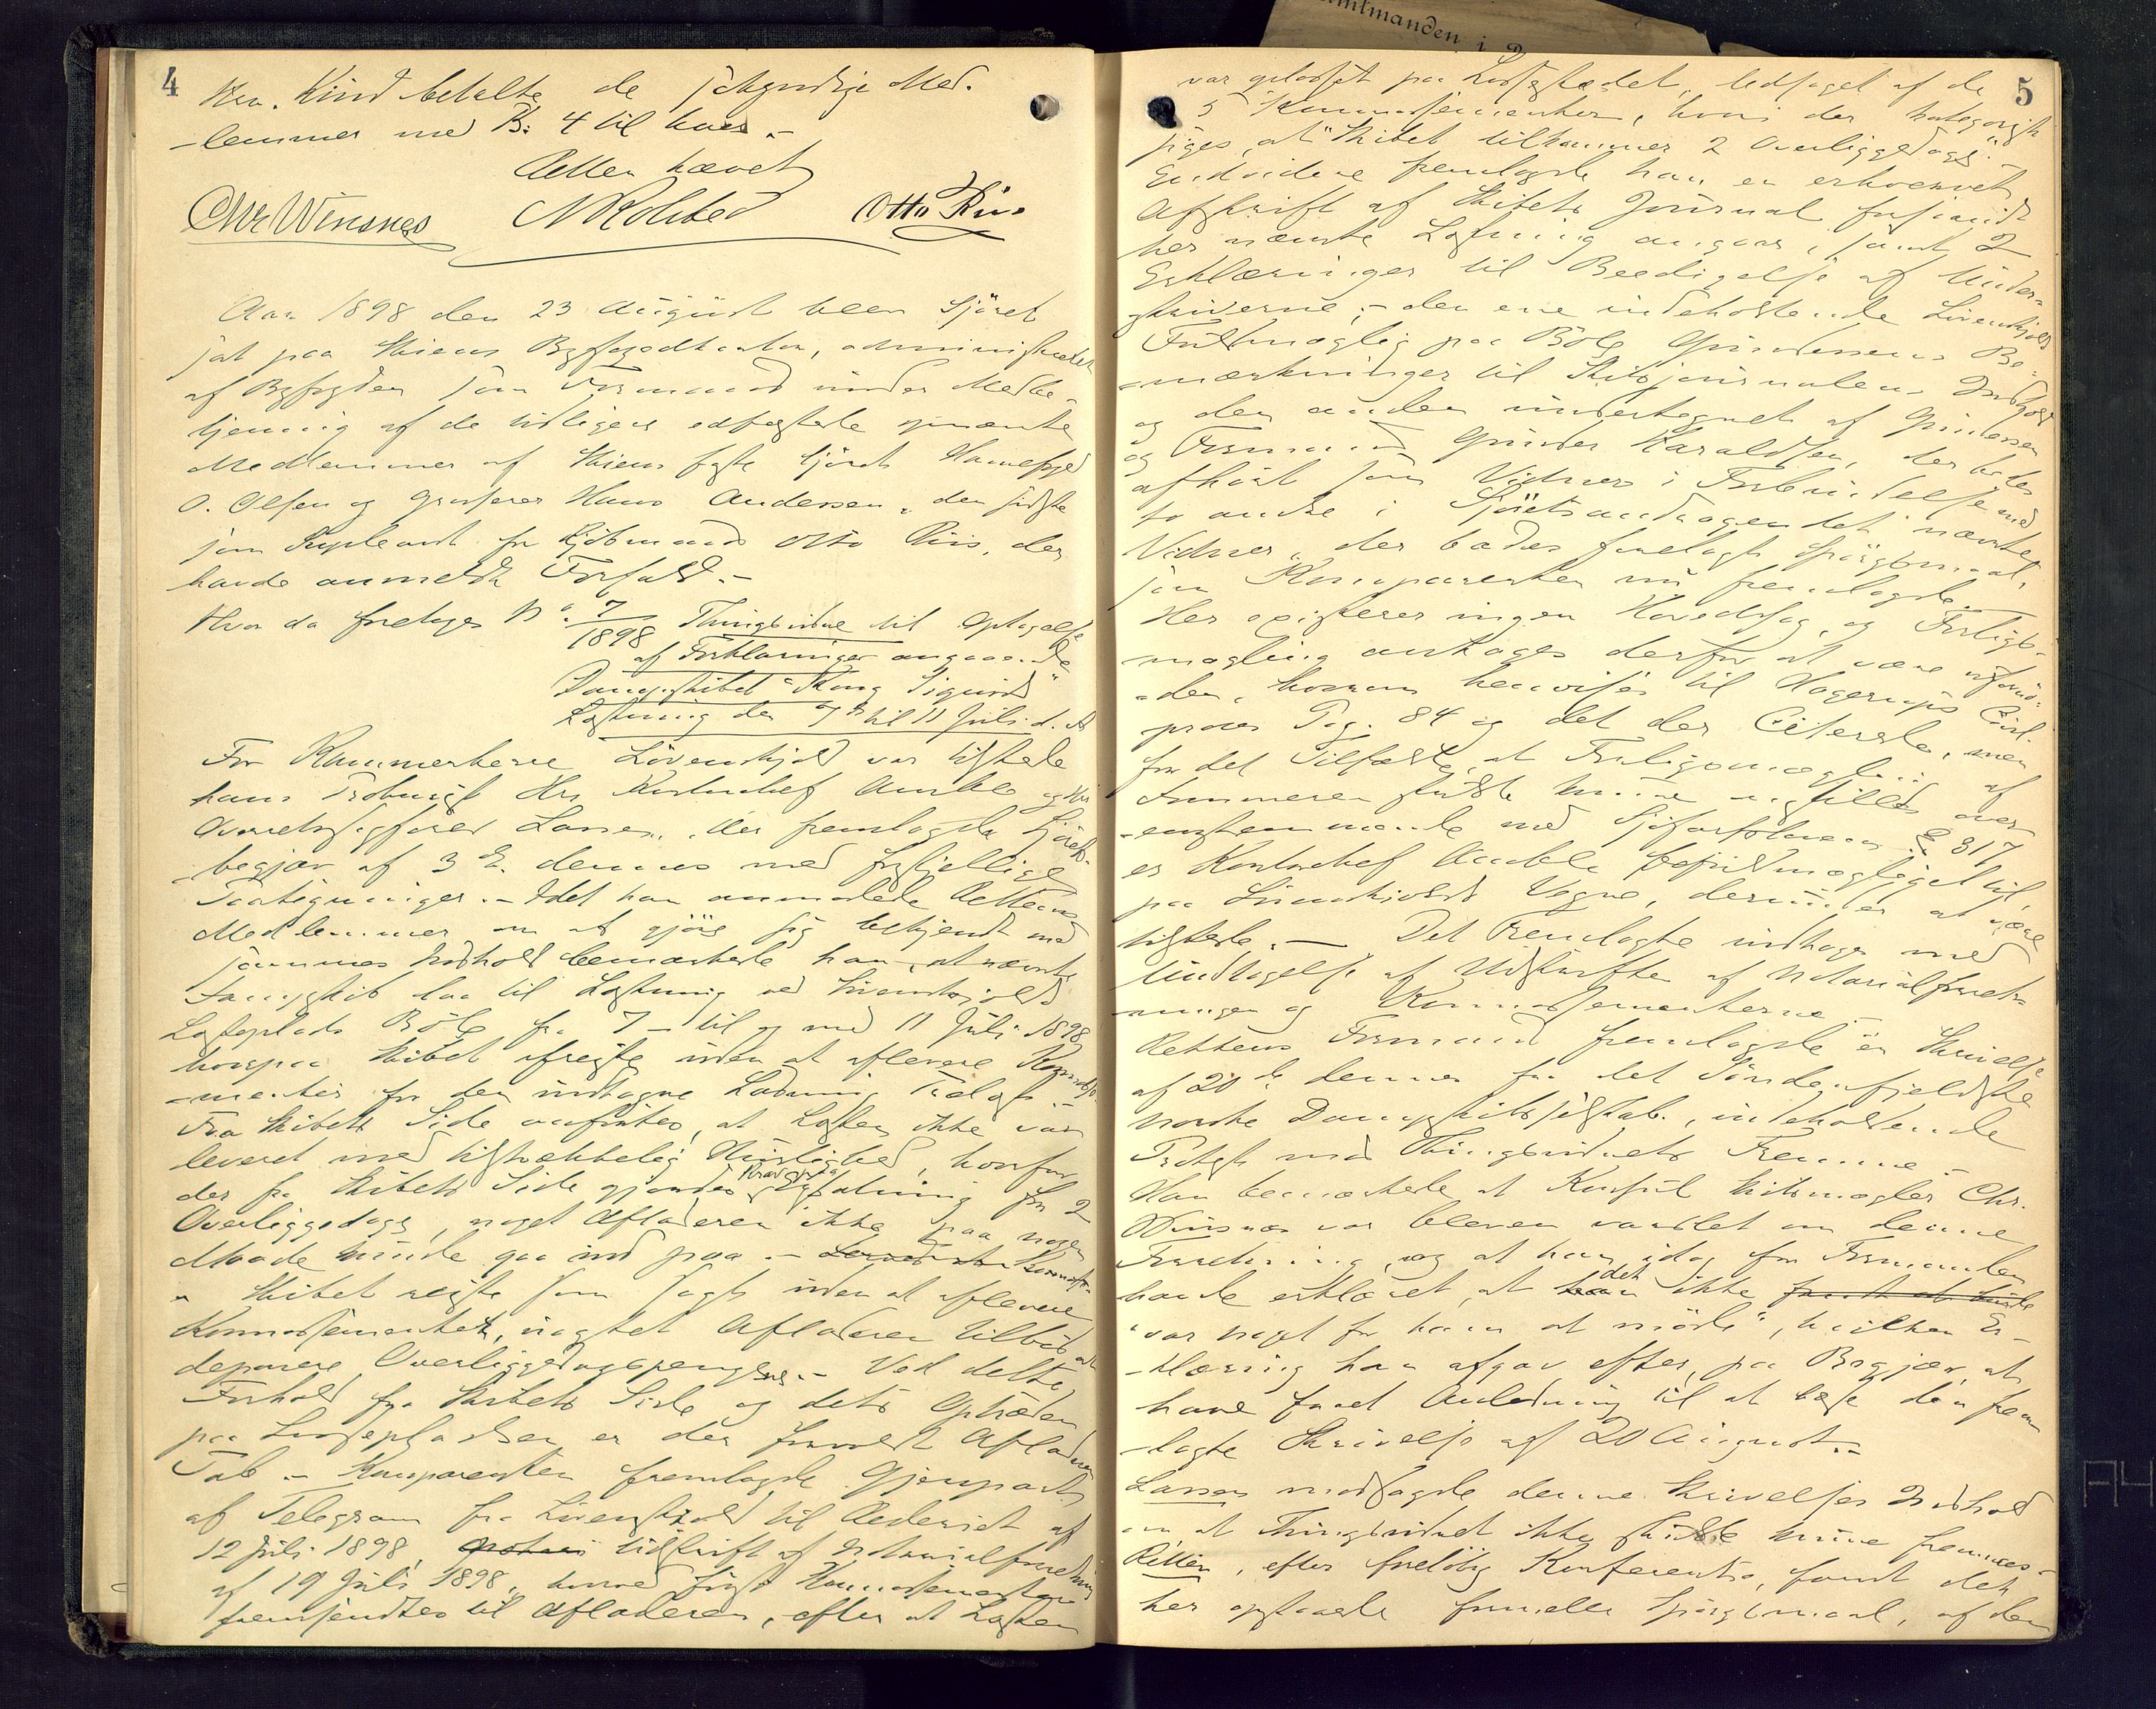 4
Hr. Kind betalte de søkyndige Med-
lemmer med Kr: 4 til hver.-
Retten hævet
Chr Winsnes N Rolsted Otto Riis
Aar 1898 den 23 August blev Sjöret
sat paa Skiens Byfogedkontor, administreret
af Byfogden som Formand under Medbe-
tjening af de tidligere edfæstede opnævnte
Medlemmer af Skiens faste Sjöret Havnefoged
O. Olsen og Grosserer Hans Andersen, den sidste
som Supleant for Kjöbmand Otto Riis, der
havde anmeldt Forfald.-
Hvor da foretoges No. 7/1898 Thingsvidne til Optagelse
af Forklaringer angaaende
Dampskibet "Kong Sigurd"
Lastning den 7de til 11 Juli d. A
For Kammerherre Lövenskjold var tilstede
hans Kontorchef Auble og Hr
Overretssagförer Lassen, der fremlagde Sjörets-
begjær af 3 ds. dennes med forskjellige
Paategninger.- Idet han anmodede Rettens
Medlemmer om at gjöre sig bekjendt med
sammes Indhold bemærkede han, at nævnte
Dampskib laa til Lastning ved Lövenskjolds
Losseplads Böle fra 7 - til og med 11 Juli 1898
hvorpaa Skibet afreiste uden at aflevere Konnosse-
menter for den indtagne Ladning Trælast.-
Fra Skibets Side anföres, at Lasten ikke var
leveret med tilstrækkelig Hurtighed, hvorfor
der fra Skibets Side gjordes Krav paa Betalning for 2
Overliggedage, noget Afladeren ikke paa nogen
Maade kunde gaa ind paa.-
Skibet reiste som sagt uden at aflevere
Konnossementet, uagtet Afladeren tilböd at
deponere Overliggedagspengene.- Ved dette
Forhold fra Skibets Side og dets Optræden
paa Lossepladsen er der forvoldt Afladeren
Tab.- Komparenten fremlagde Gjenpart
af Telegram fra Lövenskjold til Rederiet af
12 Juli 1898, Udskrift af Notarialforretning
af 19 Juli 1898, hvorved först Konnossementerne
fremsendtes til Afladeren, efter at Lasten
5
var udlosset paa Lossestedet, ledsaget af de
5 Konnossementer, hvori der kategorisk
siges, at "Skibet tilkommer 2 Overliggedage."
Endvidere fremlagde han en erhvervet
Afskrift af Skibets Journal forsaavidt
her nævnte Lastning angaar, samt 2
Erklæringer til Beedigelse af Under-
skriverne;- den ene indeholdende Lövenskjolds
Fuldmægtig paa Böle Gundersens Be-
mærkninger til Skibsjournalens Indhold
og den anden undertegnet af Gundersen
og Formand Gunder Haraldsen, der bedes
afhört som Vidner i Forbindelse med
to andre i Sjöretsandragendet nævnte
Vidner, der bedes forelagt Spörgsmaal,
som Komparenten nu fremlagde.-
Her existerer ingen Hovedsag, og Forligs-
mægling antages derfor at være uforno-
den, hvorom henvises til Hagerups Civil-
proces Pag. 84 og det der Citerede, men
for det Tilfælde, at Forligsmægling af
Dommeren skulde kunne anstilles over-
ensstemmende med Sjöfartsloven § 317,
er Kontorchef Aubele befuldmægtiget til,
paa Lövenskiolds Vegne, derunder at være
tilstede.- Det Fremlagte indtages med
Undtagelse af Udskriften af Notarialforret-
ningen og Konnossementerne.-
Rettens Formand fremlagde en Skrivelse
af 20de dennes fra det Söndenfjeldske
norske Dampskibsselskab, indeholdende
Protest mod Thingsvidnets Fremme.-
Han bemærkede at Konsul Skibsmægler Chr.
Winsnes var bleven varslet om denne
Forretning, og at han idag for Formanden
havde erklæret, at det ikke
"var noget for ham at möde", hvilken Er-
klæring han afgav efter, paa Begjær, at
have faaet Anledning til at læse den frem
lagte Skrivelse af 20 August.-
Lassen modsagde denne Skrivelses Indhold
om at Thingsvidnet ikke skulde kunne fremmes.-
Retten, efter foreløbig Konferentse, fandt det
her opstaaede formelle Spörgsmaal, af den